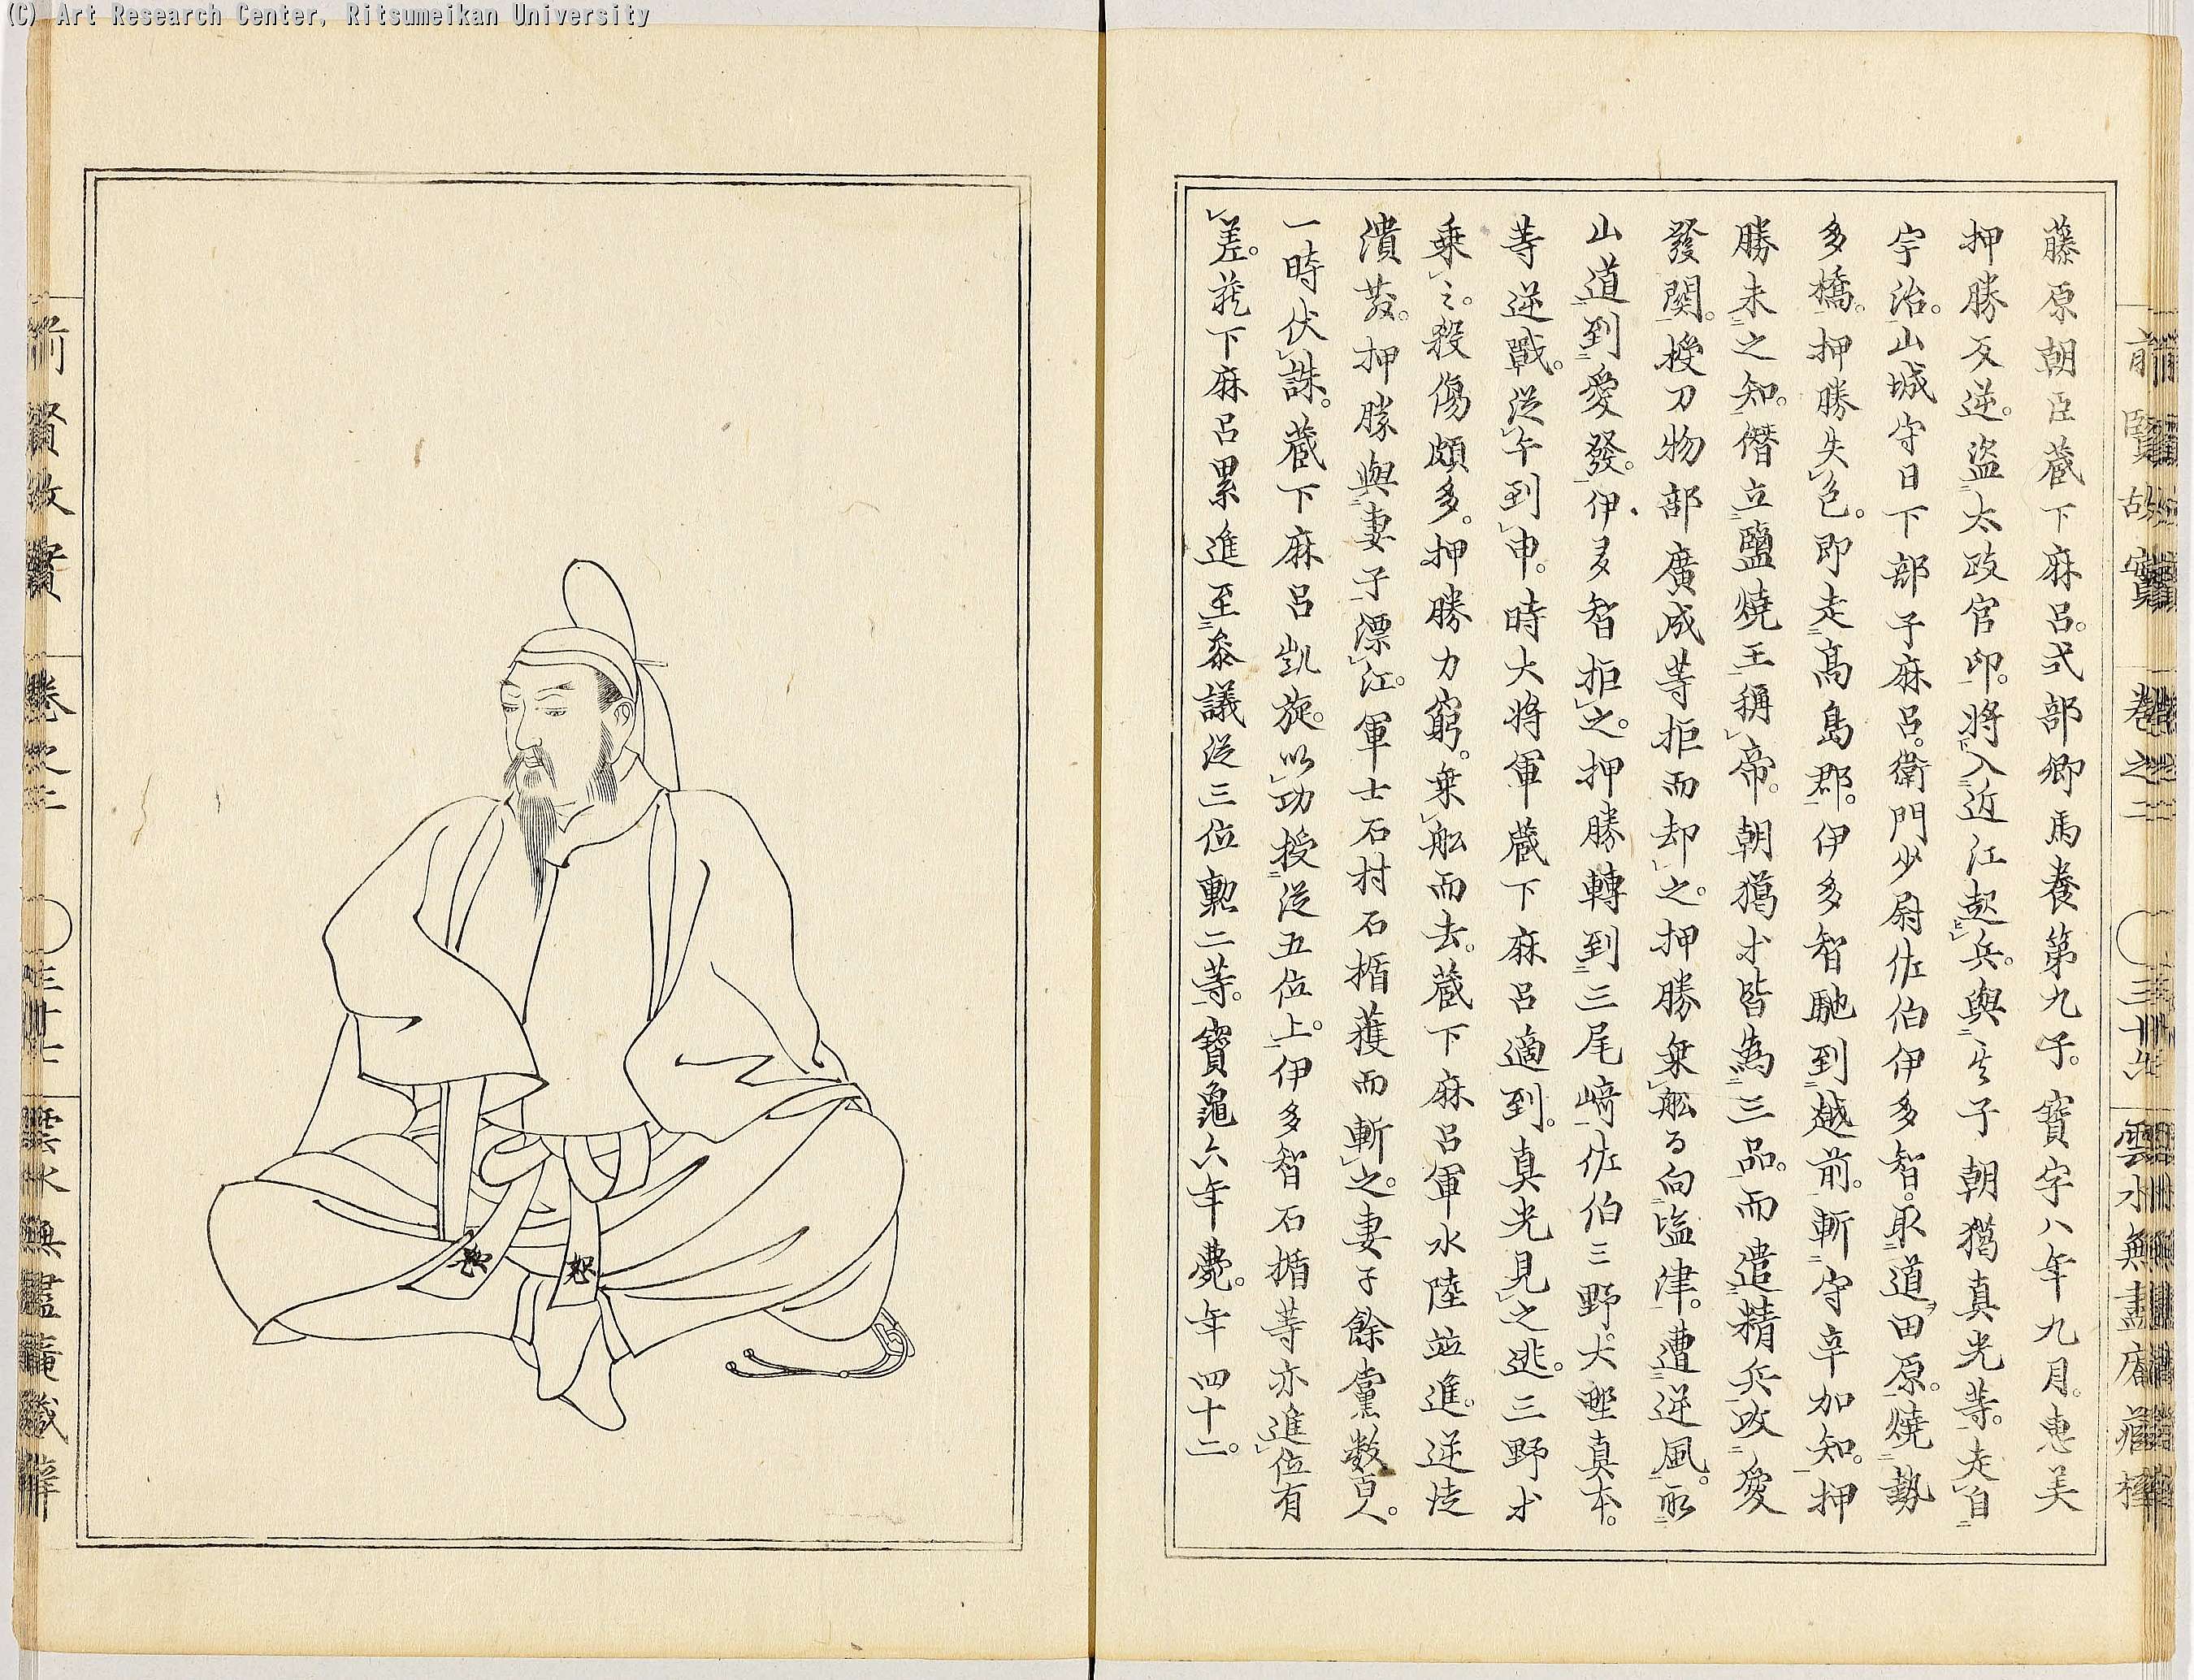 (C) Art Research Center, Ritsumeikan University
藤原朝臣蔵下麻呂。式部卿馬養第九子。寶字八年九月。恵美
押勝反逆。盗太政官印。将入近江起兵。與其子朝獦真光等。走自
宇治。山城守日下部子麻呂。衛門少尉佐伯伊多智。取道田原。焼勢
多橋。押勝失色。即走高島郡。伊多智馳到越前。斬守辛加知。押
勝未之知。僭立鹽燒王稱帝。朝獦才皆為三品。而遣精兵攻愛
發関。授刀物部廣成等拒而却之。押勝乗舩向塩津。遭逆風。取
山道到愛發。伊多智拒之。押勝轉到三尾﨑。佐伯三野。大野真本。
等逆戰。従午到申。時大将軍蔵下麻呂適到。真光見之逃。三野才
乗之。殺傷頗多。押勝力窮。乗舩而去。蔵下麻呂軍水陸並進。逆徒
潰散。押勝與妻子漂江。軍士石村石楯獲而斬之。妻子餘黨数百人。
一時伏誅。蔵下麻呂凱旋。以功授従五位上。伊多智石楯等亦進位有
差。蔵下麻呂累進至参議従三位勲二等。寶龜六年薨。年四十二。
前賢故實 巻之二 三十六 雲水無盡庵蔵梓
前賢故實 巻之二 三十七 雲水無盡庵蔵
恕